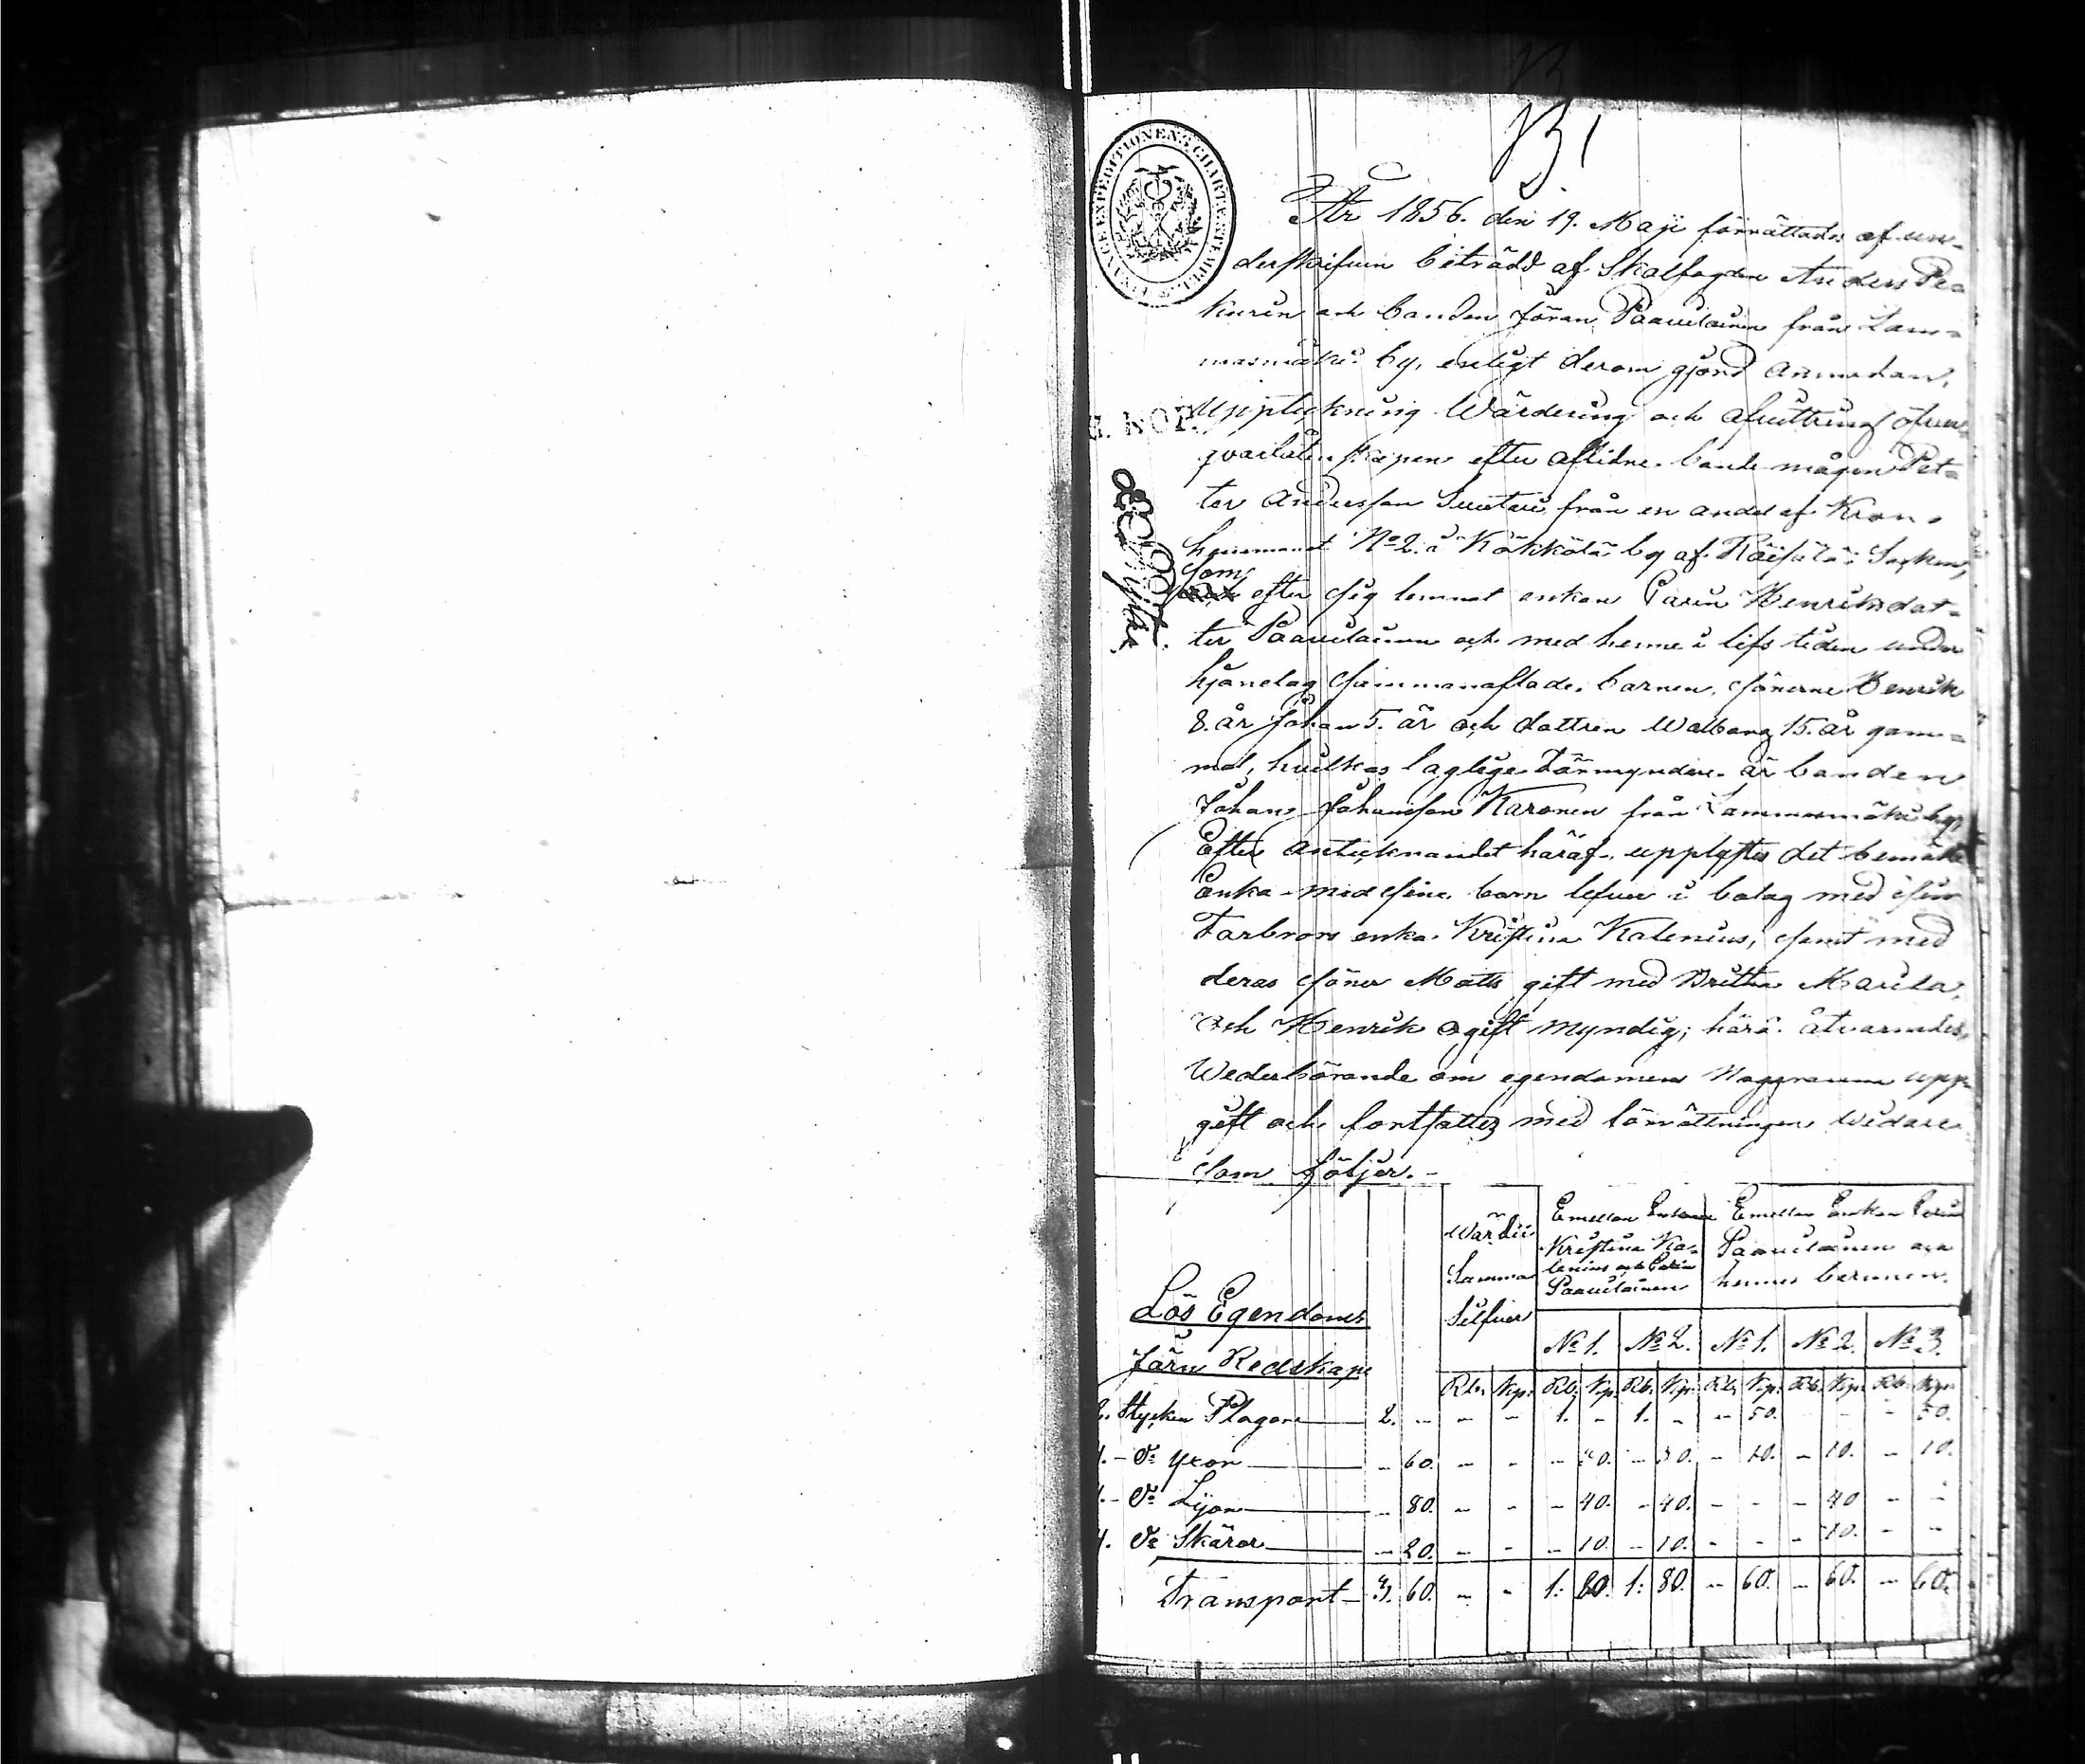 B 1
FINANCE EXPEDITIONENS CHARTÆ STEMPEL
År 1856. den 19. Maji förrättades af un-
derskrifven biträdd af Skalfogden Anders Pea
kurin och bonden Jöran Paavilainen från Lam-
masmäki by, enligt derom gjord anmodan,
KOP.
Uppteckning Wärdering och afvittring öfver
qvarlåtenskapen efter aflidne bonde mågen Pet-
ter Andersson från en andel af Krono
hemmanet No 2. i Kökkölä by af Räisälä Socken,
som efter sig lemnat enkan Carin Henriksdot-
ter Paavilainen och med henne i lifs tiden under
hjonelag sammanaflade barnen, sönerne Henrik
8. år Johan 5. år och dottren Walborg 15. år gam-
mal, hvilkas laglige Förmyndare är bonden
Johan Johansson Karonen från Lammasmäki by,
Efter antecknandet häraf, upplystes det bemälte
Enka med sine barn lefver i bolag med sin
Farbrors enka Kristina Kalenius, samt med
deras söner Matts gift med Britha Marila,
och Henrik ogift myndig; härå åtvarnades
Wederbörande om egendomens noggranna upp-
gift och fortsattes med förrättningen widare
som följer.-
Wärde i
Samma
Silfver
Emellan Enkorna
Kristina Ka-
lenius och Carin
Paavilainen
Emellan Enkan Carin
Paavilainen och
hennes barnen.
Lös Egendomen
No 1. No 2. No 1. No 2. No 3.
Järn Redskap
Rb. Kp. Rb. Kp. Rb. Kp. Rb. Kp. Rb. Kp. Rb. Kp.
2. Stycken Plogar 2. - - - 1. - 1. - - 50. - - - 50.
do Yxor - 60. - - - 30. - 30. - 10. - 10. - 10.
do Lijor - 80. - - - 40. - 40. - - - 40 - -
4. do Skäror - 20. - - - 10. - 10. - - - 10. - -
Transport - 3. 60. - - 1: 80. 1: 80. - 60. - 60. - 60.